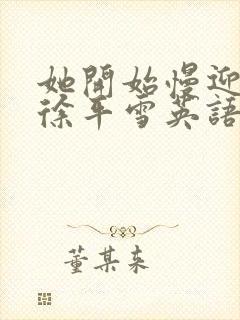 她開始慢迎
徐平雪英語
董某来